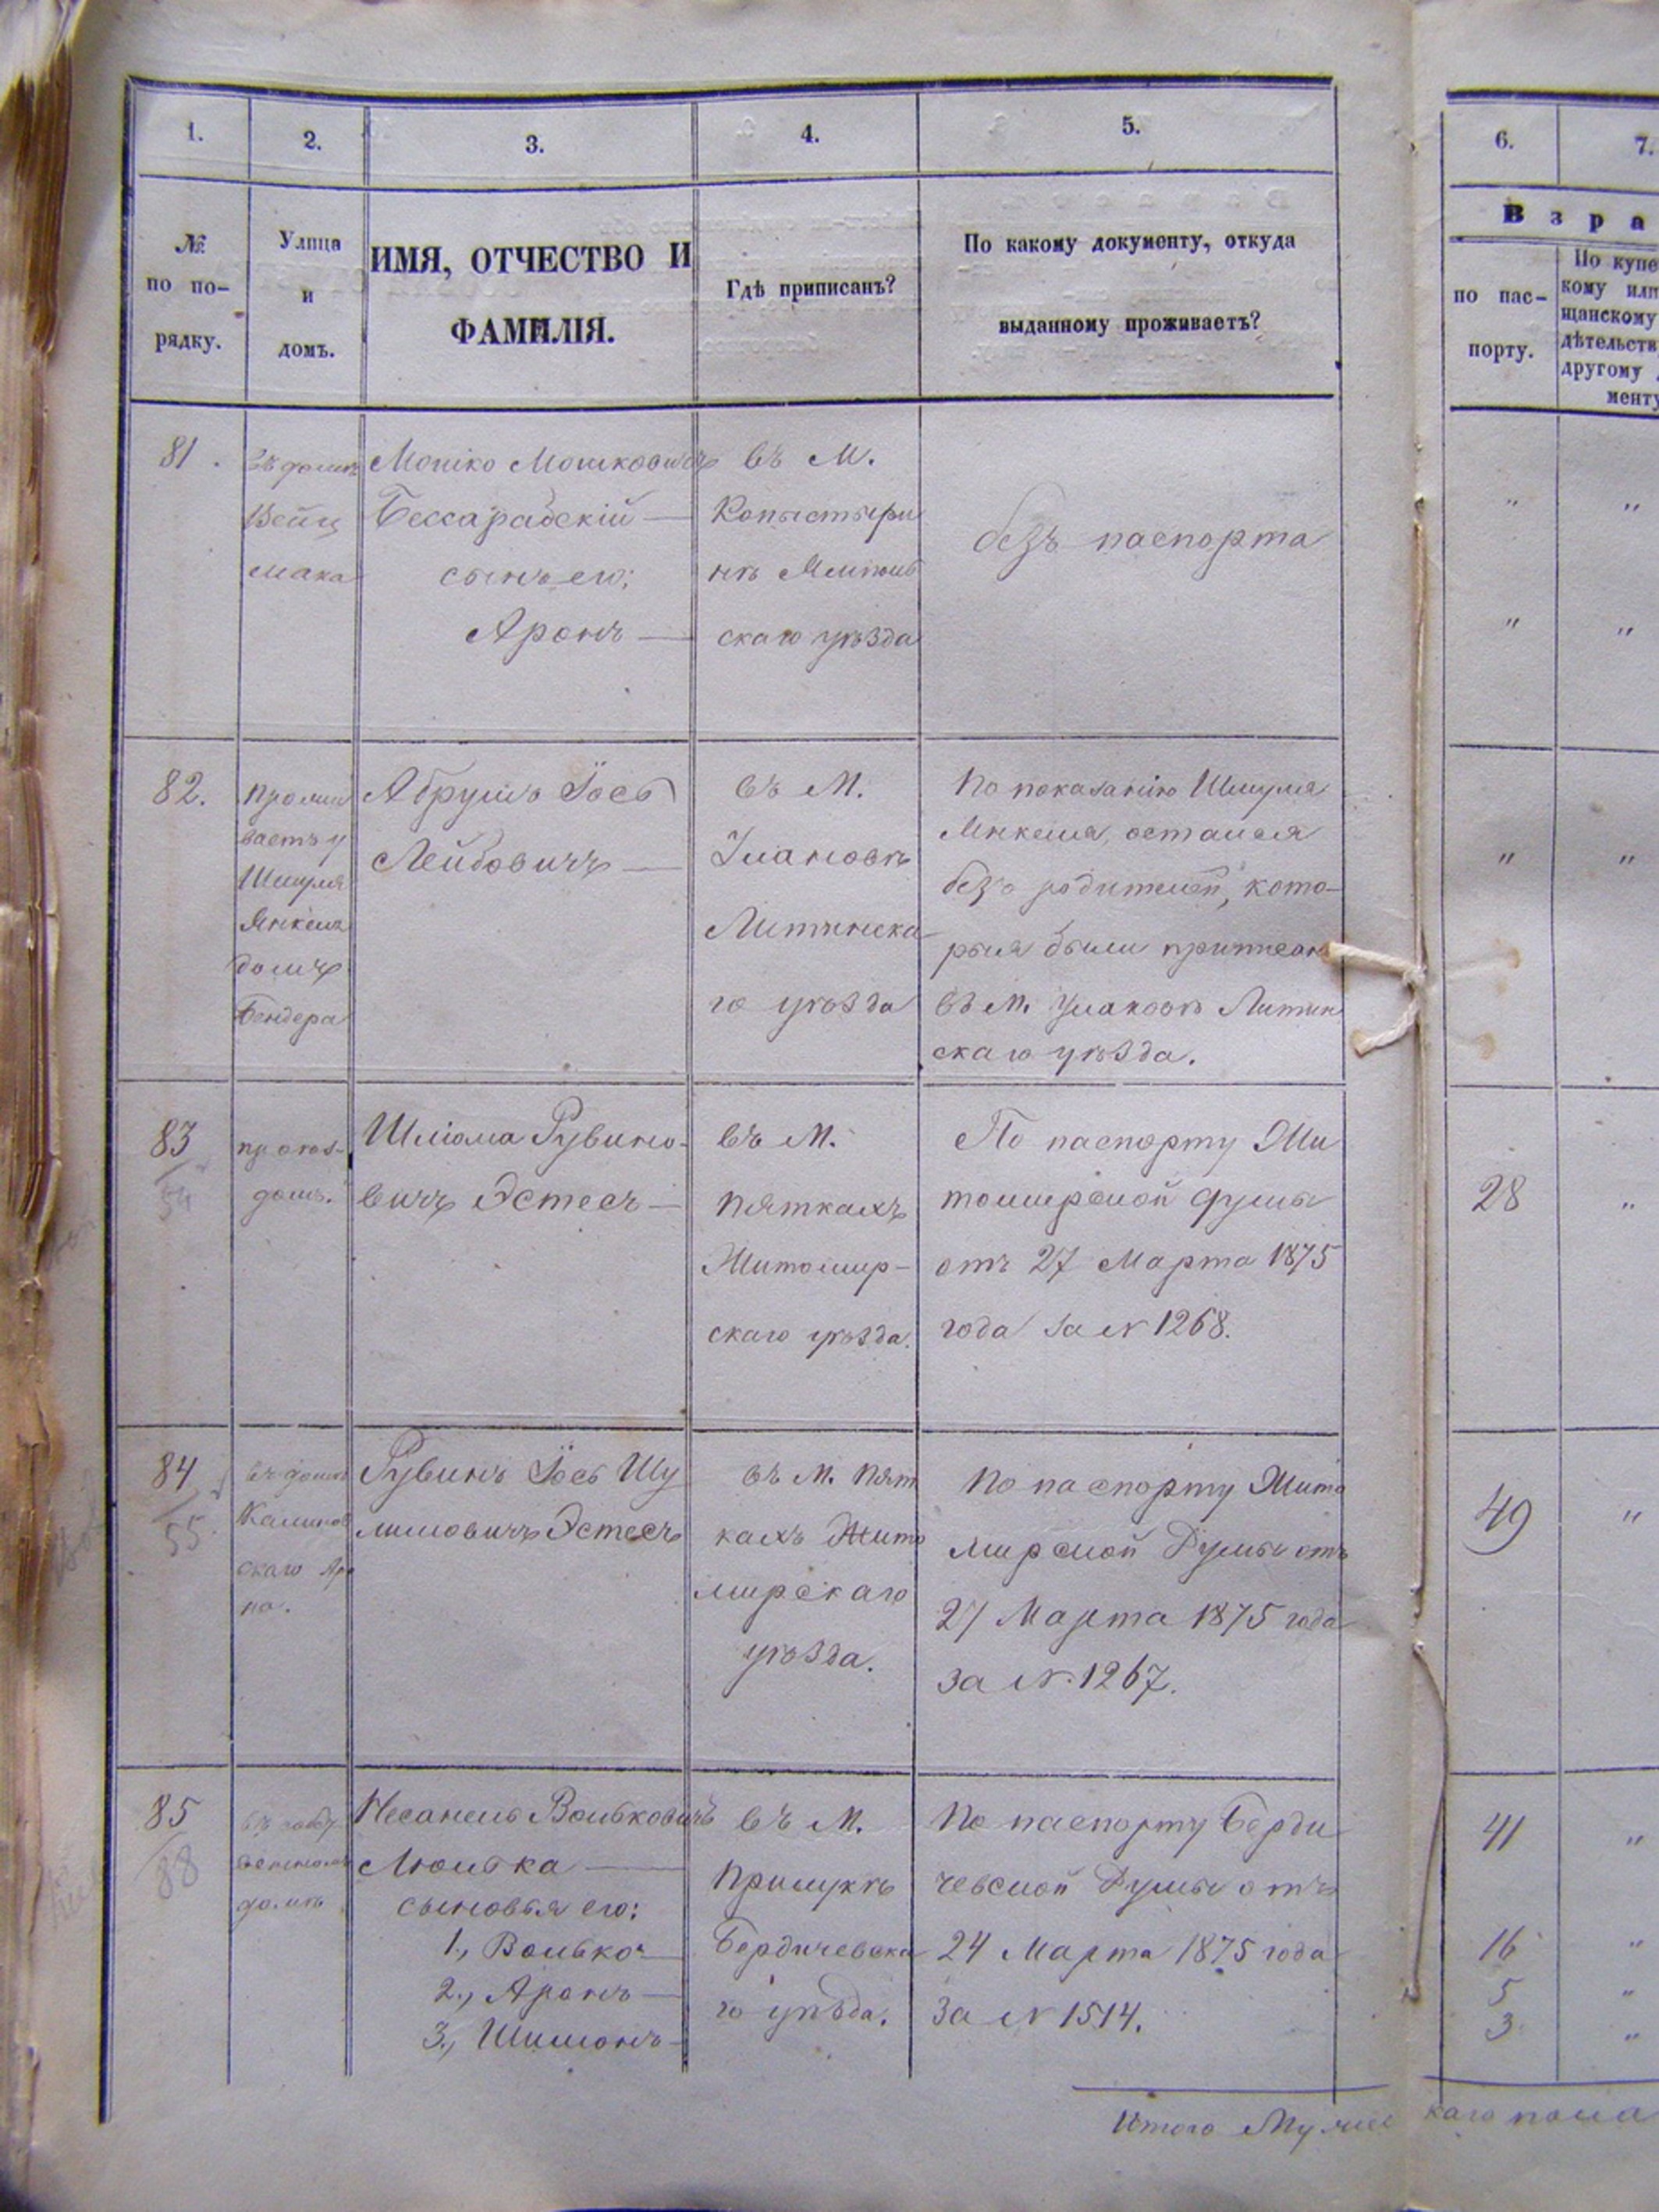 1. 2. 3. 4. 5. 6. 7.
№
по по-
рядку.
Улица
и
домъ.
ИМЯ, ОТЧЕСТВО И
ФАМИЛІЯ.
Гдѣ приписанъ?
По какому документу, откуда
выданному проживаетъ?
Взра
по пас-
порту.
По купе
кому или
щанскому
дѣтельств
другому
менту
81.
въ домѣ
Вейц
мака
Мошко Мошковичъ
Бессарабскій —
сынъ его:
Аронъ —
въ М.
Копыстыри
нѣ Ямполь
скаго уѣзда
безъ паспорта
" "
" "
82.
Прожи
ваетъ у
Шмуля
Янкеля
домъ
Бендера
Абрумъ Іось
Лейбовичъ —
въ М.
Улановѣ
Литинска-
го уѣзда
По показанію Шмуля
Янкеля, остался
безъ родителей, кото-
рыя были приписаны
въ М. Улановѣ Литин
скаго уѣзда.
" "
83
54
домъ.
Шліома Рувино-
вичъ Эстесъ —
въ М.
Пяткахъ
Житомир-
скаго уѣзда.
По паспорту Жи
томирской Думы
отъ 27 Марта 1875
года за № 1268.
28 "
84
55
въ домѣ
Калинов
скаго Аро
на.
Рувинъ Іось Шу
лимовичъ Эстесъ
въ М. Пят
кахъ Жито
мирскаго
уѣзда.
По паспорту Жито
мирской Думы отъ
27 Марта 1875 года
за № 1267.
49 "
85
88
домѣ
Несанель Вольковичъ
Люлька —
сыновья его:
1., Волько —
2., Аронъ —
3., Шимонъ —
въ М.
Прилукѣ
Бердичевска
го уѣзда.
По паспорту Берди
чевской Думы отъ
24 Марта 1875 года
За № 1514.
41 "
16 "
5 "
3 "
Итого Мужескаго пола